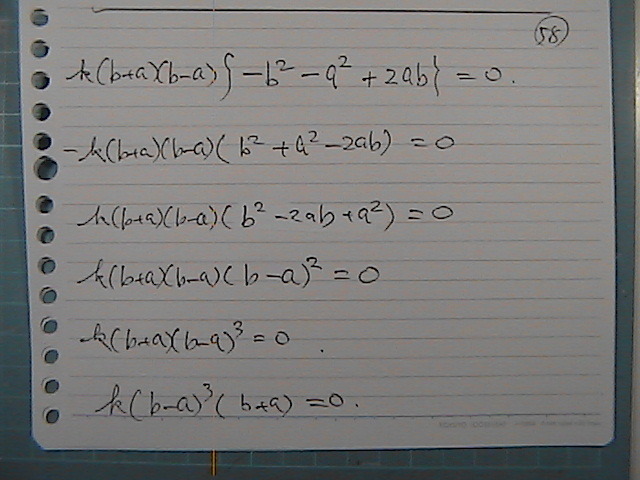 58
k(b+a)(b-a){-b²-a²+2ab}=0.
-k(b+a)(b-a)(b²+a²-2ab)=0
k(b+a)(b-a)(b²-2ab+a²)=0
k(b+a)(b-a)(b-a)²=0
k(b+a)(b-a)³=0.
k(b-a)³(b+a)=0.